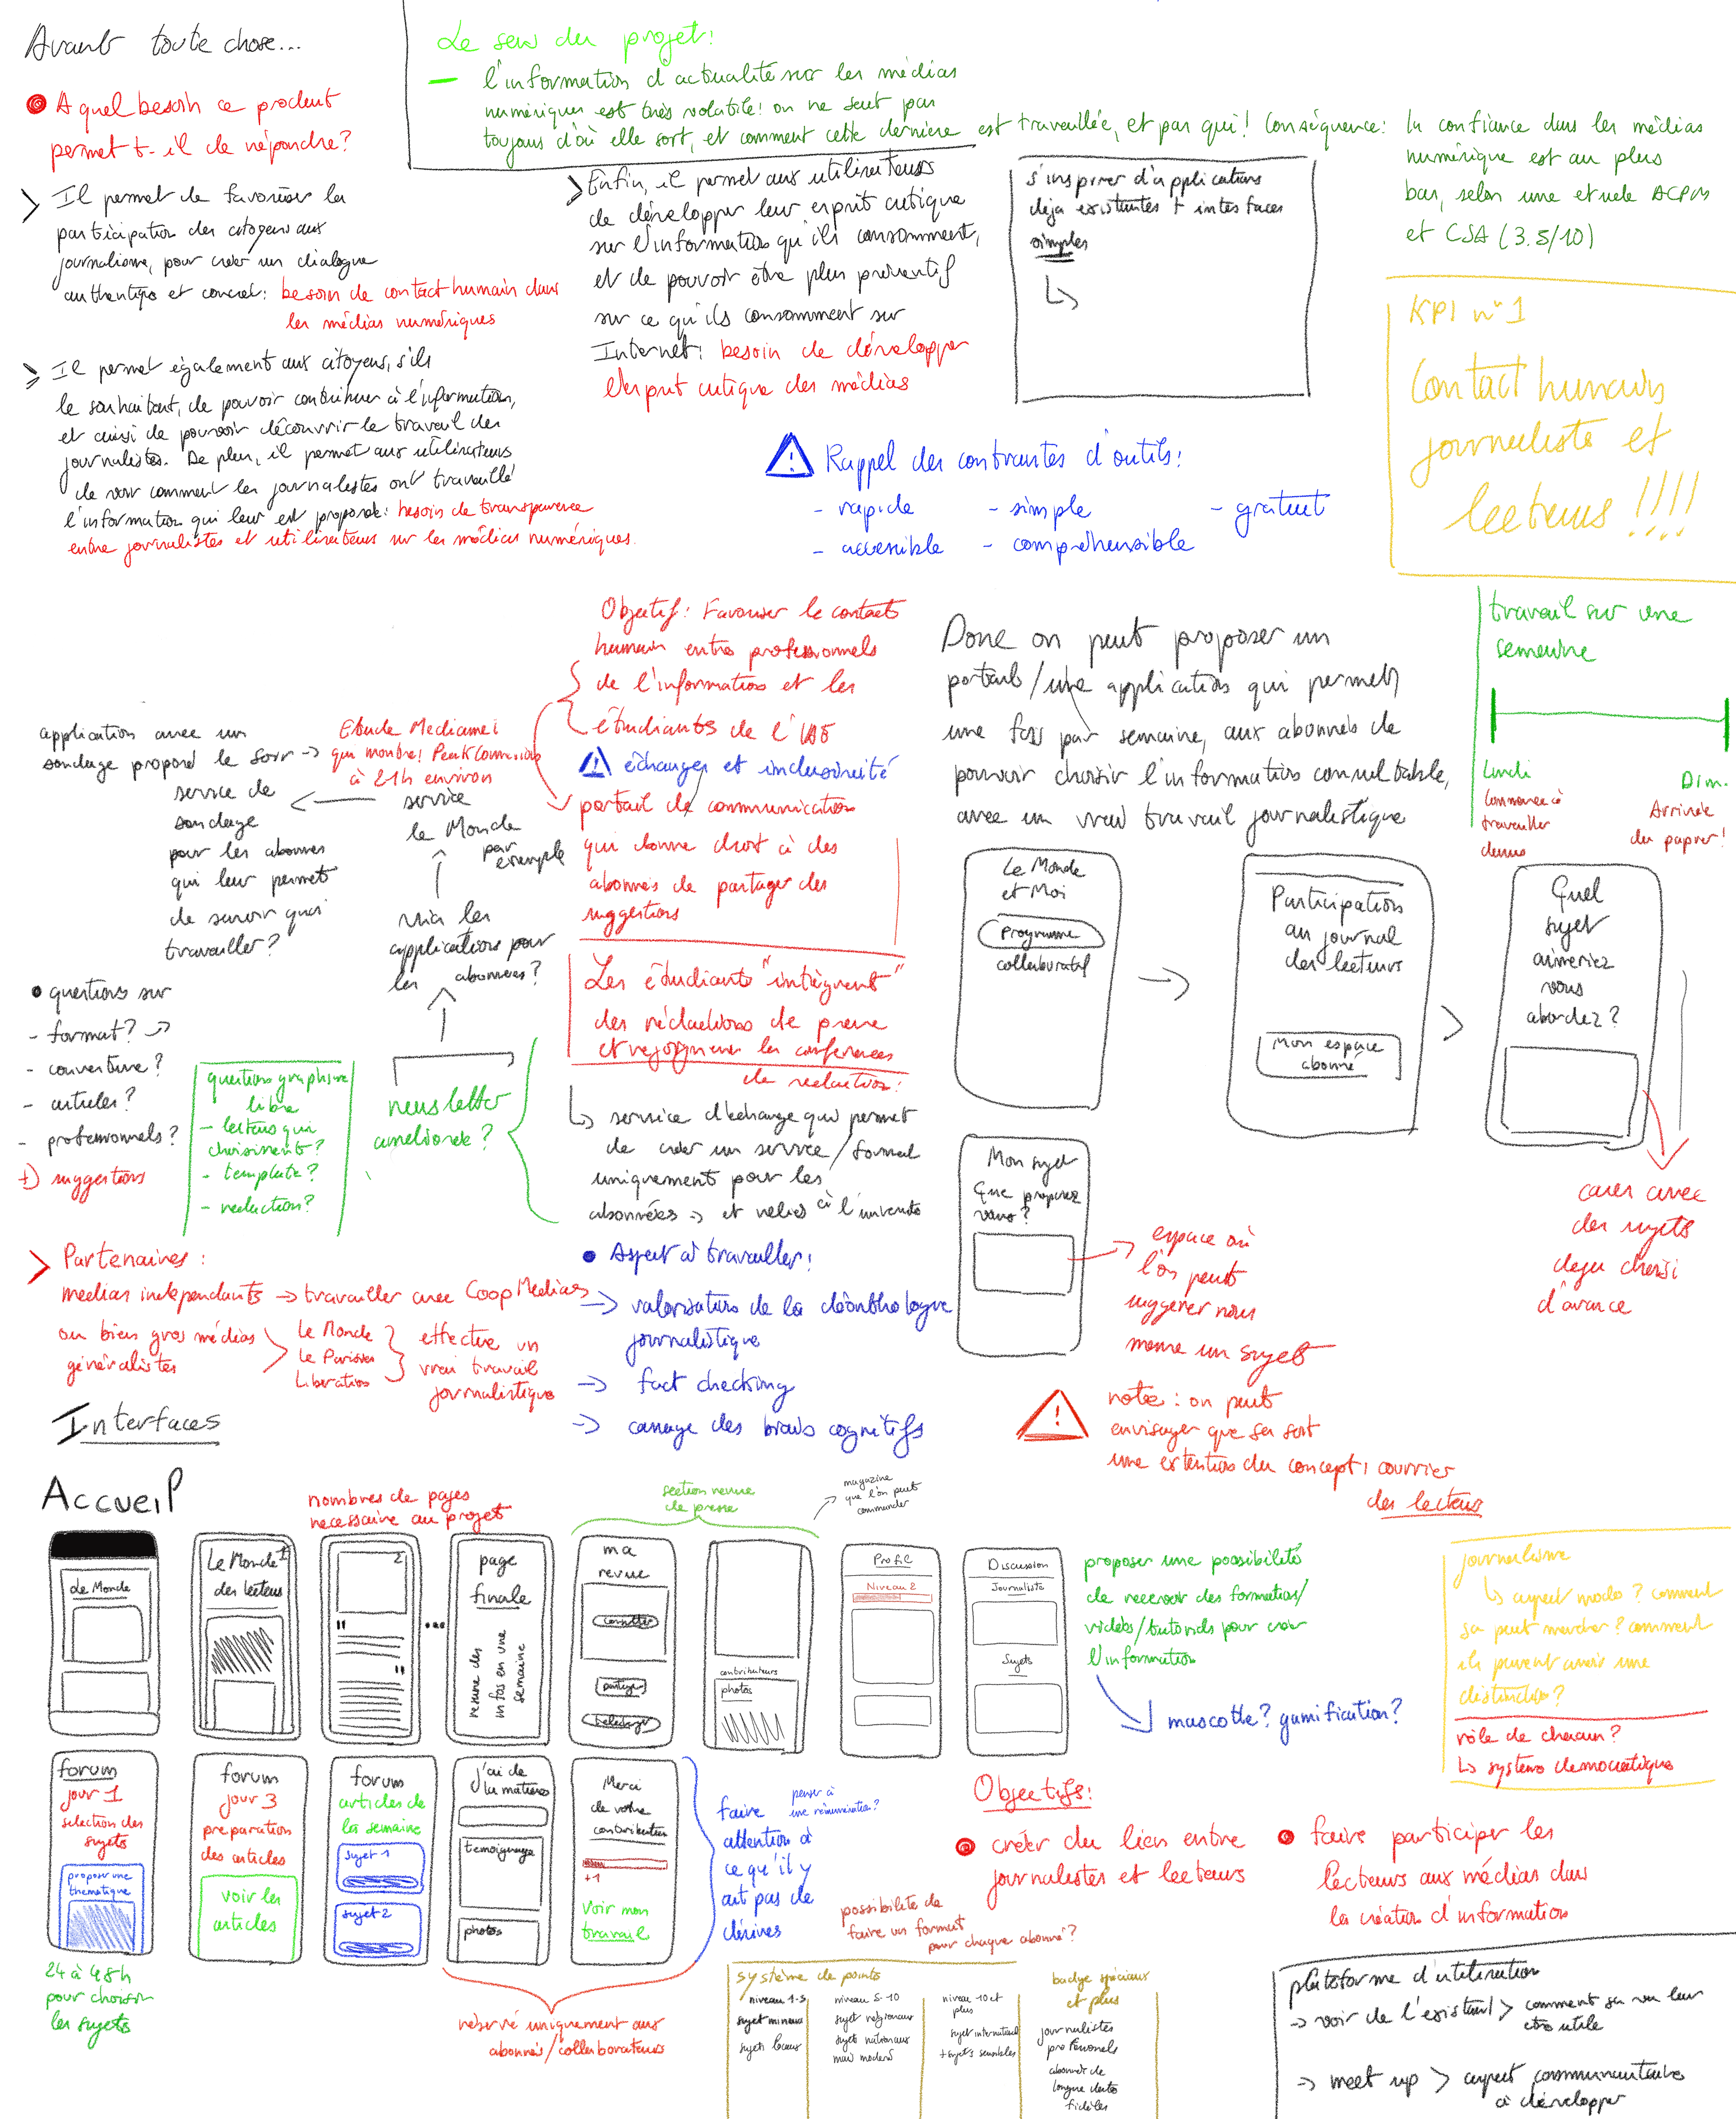 Avant toute chose...
A quel besoin ce produit
permet t-il de répondre?
> Il permet de favoriser la
participation des citoyens aux
journalisme, pour créer un dialogue
authentique et concret: besoin de contact humain dans
les médias numériques
> Il permet également aux citoyens, s'ils
le souhaitent, de pouvoir contribuer à l'information,
et aussi de pouvoir découvrir le travail des
journalistes. De plus, il permet aux utilisateurs
de voir comment les journalistes ont travaillé
l'information qui leur est proposée: besoin de transparence
entre journalistes et utilisateurs sur les médias numériques.
Le sens du projet:
- l'information d'actualité sur les médias
numériques est très volatile! on ne sait pas
toujours d'où elle sort, et comment cette dernière est travaillée, et par qui! Conséquence: la confiance dans les médias
numérique est au plus
bas, selon une etude ACPM
et CSA (3.5/10)
> Enfin, il permet aux utilisateurs
de développer leur esprit critique
sur l'information qu'ils consomment,
et de pouvoir être plus préventif
sur ce qu'ils consomment sur
Internet: besoin de développer
l'esprit critique des médias
s'inspirer d'applications
déja existantes + interfaces
simples
KPI n°1
Contact humain
journaliste et
lecteurs !!!!
Rappel des contraintes d'outils:
- rapide - simple - gratuit
- accessible - compréhensible
Objectif: Favoriser le contact
humain entre professionnels
de l'information et les
étudiants de l'
échanges et inclusivité
portail de communication
qui donne droit à des
abonnés de partager des
suggestions
Les étudiants "intègrent"
des rédactions de presse
et rejoignent les conférences
de redaction:
service d'échange qui permet
de créer un service/format
uniquement pour les
abonnées → et reliés à l'université
application avec un
sondage propose le soir →
Etude Mediametrie
qui montre! Peak
à 21h environ
service
le Monde
par
exemple
service de
sondage
pour les abonnés
qui leur permet
de savoir quoi
travailler?
via les
applications pour
les abonnées?
newsletter
améliorée?
questions sur
- format? →
- couverture?
- articles?
- professionnels?
+) suggestions
question graphisme
libre
- lecteurs qui
choisissent?
- template?
- rédaction?
> Partenaires:
médias indépendants → travailler avec CoopMedias
ou bien gros médias
généralistes
Le Monde
Le Parisien
Liberation
effectuer un
vrai travail
journalistique
Aspect à travailler:
→ valorisation de la déontologie
journalistique
→ fact checking
→ cassage des biais cognitifs
Donc on peut proposer un
portail/une application qui permet
une fois par semaine, aux abonnés de
pouvoir choisir l'information consultable,
avec un vrai travail journalistique
travail sur une
semaine
Lundi
Commence à
travailler
dessus
Dim.
Arrivée
du papier!
Le Monde
et Moi
Programme
collaboratif
Participation
au journal
des lecteurs
Mon espace
abonné
Quel
sujet
aimeriez
vous
abordez?
cases avec
des sujets
deja choisi
d'avance
Mon sujet
Que proposez
vous?
espace où
l'on peut
suggérer nous
meme un sujet
note: on peut
envisager que ça soit
une extention du concept: courrier
des lecteurs
Interfaces
Accueil
nombres de pages
necessaire au projet
section revue
de presse
magazine
que l'on peut
commander
Le Monde
Le Monde 1
des lecteurs
2
...
page
finale
resume des
infos en une
semaine
ma
revue
consulter
partager
télécharger
contributeurs
photos
Profil
Niveau 2
Discussion
Journaliste
Sujets
proposer une possibilité
de recevoir des formations/
vidéos/tutoriels pour créer
l'information
mascotte? gamification?
journalisme
↳ aspect modo? comment
ça peut marcher? comment
ils peuvent avoir une
distinction?
rôle de chacun?
↳ système démocratique
forum
jour 1
selection des
sujets
proposer une
thematique
24 à 48h
pour choisir
les sujets
forum
jour 3
preparation
des articles
voir les
articles
forum
articles de
la semaine
sujet 1
sujet 2
j'ai de
la matière
temoignage
photos
Merci
de votre
contribution
+1
voir mon
travail
réservé uniquement aux
abonnés/collaborateurs
faire
attention à
ce qu'il y
ait pas de
dérives
penser à
une rémunération?
possibilité de
faire un format
pour chaque abonné?
Objectifs:
créer du lien entre
journalistes et lecteurs
faire participer les
lecteurs aux médias dans
la création d'information
système de points
niveau 1-5
sujet mineur
sujets locaux
niveau 5-10
sujet régionaux
sujets nationaux
mais modéré
niveau 10 et
plus
sujet international
+ sujets sensibles
badge spéciaux
et plus
journalistes
professionels
abonnés de
longue durée
fidèles
plateforme d'utilisation
→ voir de l'existant > comment ça va leur
etre utile
→ meet up > aspect communautaire
à développer